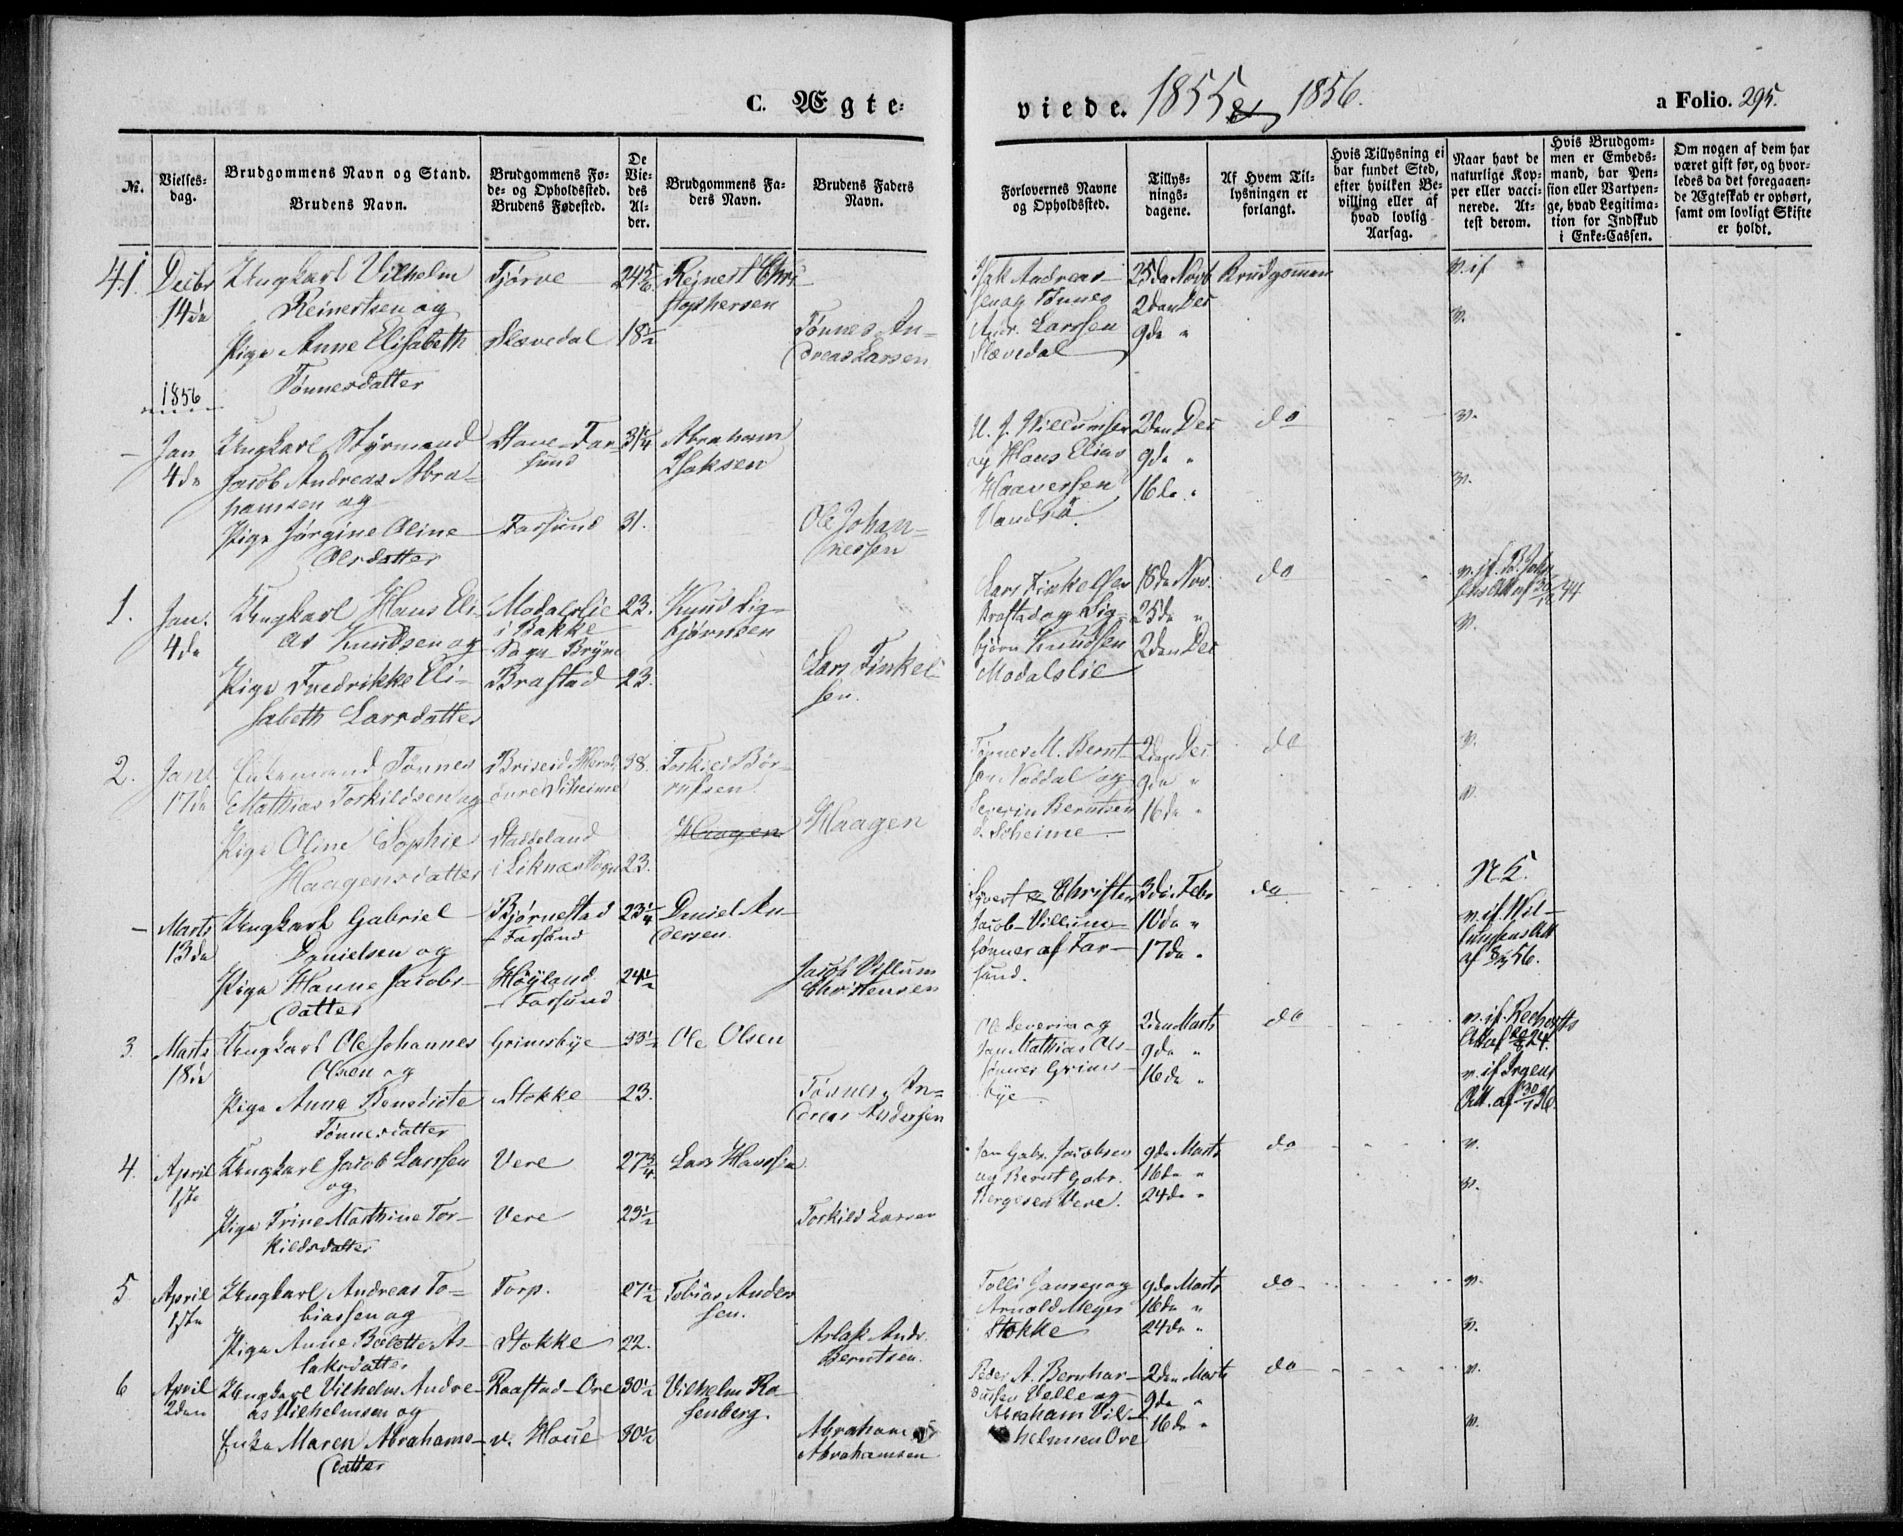 C. Ægte-
viede. 1855 & 1856.
a Folio. 295.
No.
Vielses-
dag.
Brudgommens Navn og Stand.
Brudens Navn.
Brudgommens Fø-
de- og Opholdssted.
Brudens Fødested.
De
Vie-
des
Al-
der.
Brudgommens Fa-
ders Navn.
Brudens Faders
Navn.
Forlovernes Navne
og Opholdssted.
Tillys-
nings-
dagene.
Af Hvem Til-
lysningen er
forlangt.
Hvis Tillysning ei
har fundet Sted,
efter hvilken Be-
villing eller af
hvad lovlig
Aarsag.
Naar havt de
naturlige Kop-
per eller vacci-
nerede. At-
test derom.
Hvis Brudgom-
men er Embeds-
mand, har Pen-
sion eller Vartpen-
ge, hvad Legitima-
tion for Indskud
i Enke-Cassen.
Om nogen af dem har
været gift før, og hvor-
ledes da det foregaaen-
de Ægteskab er ophørt,
samt om lovligt Skifte
er holdt.
41.
Decbr
14de
Ungkarl Vilhelm
Reinertsen og
Pige Anne Elisabeth
Tønnesdatter
Tjørve
Slævedal
24 5/6
18 1/2
Reinert Chri-
stophersen
Tønnes An-
dreas Larsen
Isak Andreas-
sen og Tønnes
Andr. Larssen
Slævedal
25de Novb
2den Des
9de "
Brudgommen
v. if
v.
1856
–
Jan
4de
Ungkarl Styrmand
Jacob Andreas Abra-
hamsen og
Pige Jørgine Oline
Olsdatter
Stave – Far-
sund
Farsund
31 1/4
31.
Abraham
Isaksen
Ole Johan-
nessen
Willumsen
og Hans Elias
Haaversen
2den Des
9de "
16de "
do
v.
v.
1.
Jan.
4de
Ungkarl Hans Eli-
as Knudsen og
Pige Fredrikke Eli-
sabeth Larsdatter
Modalslie
i Bakke
Sogn – Bryne
Brastad
23.
23.
Knud Sig-
bjørnsen
Lars Finkel-
sen.
Lars Finkelsen
Brastad og Sig-
bjørn Knudsen
Modalslie
18de Nov.
25de "
2den Des
do
v.
2.
Jan.
17de
Enkemand Tønnes
Mathias Torkildsen og
Pige Oline Sophie
Haagensdatter
Stadseland
i Liknæs Sogn
38.
23.
Torkild Bør-
rufsen.
Haagen
Haagen
Tønnes M. Bernt-
sen Noddal og
Severin Berntsen
Soheime
2den Des
9de "
16de "
do
v.
v.
–
Marts
13de
Ungkarl Gabriel
Danielsen og
Pige Hanne Jacobs-
datter
Bjørnestad
– Farsund
Høyland
– Farsund
23 1/4
24 1/2
Daniel An-
dersen.
Jacob Villum
Christensen
Jacob Villum-
sønner af Far-
sund.
3die Febr
10de "
17de "
do
N. 5.
v. if. Wil-
3
Marts
18de
Ungkarl Ole Johannes
Olsen og
Pige Anne Benedicte
Tønnesdatter
Grimsbye
Stokke
33 1/2
23.
Ole Olsen
Tønnes An-
dreas Andersen
Ole Severin og
Jan Mathias Ols-
sønner Grims-
bye.
2den Marts
9de "
16de "
do
4.
April
1ste
Ungkarl Jacob Larssen
og
Pige Trine Marthine Tor-
kildsdatter
Vere
Vere
27 3/4
23 1/2
Lars Hanssen
Torkild Larsen
Jan Gabr. Jacobsen
og Bernt Gabr.
Børgesen Vere.
9de Marts
16de "
24de "
do
v.
v.
5
April
1ste
Ungkarl Andreas To-
biassen og
Pige Anne Bolette As-
laksdatter
Torp.
Stokke
27 1/2
22.
Tobias Anders
sen.
Aslak Andr.
Berntsen.
Tolli Jansen og
Arnold Meyer
Stokke
9de Marts
16de "
24de "
do
v.
v.
6
April
2den
Ungkarl Vilhelm Andre-
as Vilhelmsen og
Enke Maren Abrahams-
datter
Raastad – Ore
v. Houe
30 1/2
30 1/2
Vilhelm Ro-
senberg.
Abraham
Abrahamsen
Peder A. Bernhar-
dussen Velle og
Abraham Vil-
helmsen Ore
2den Marts
9de "
16de "
do
v.
v.